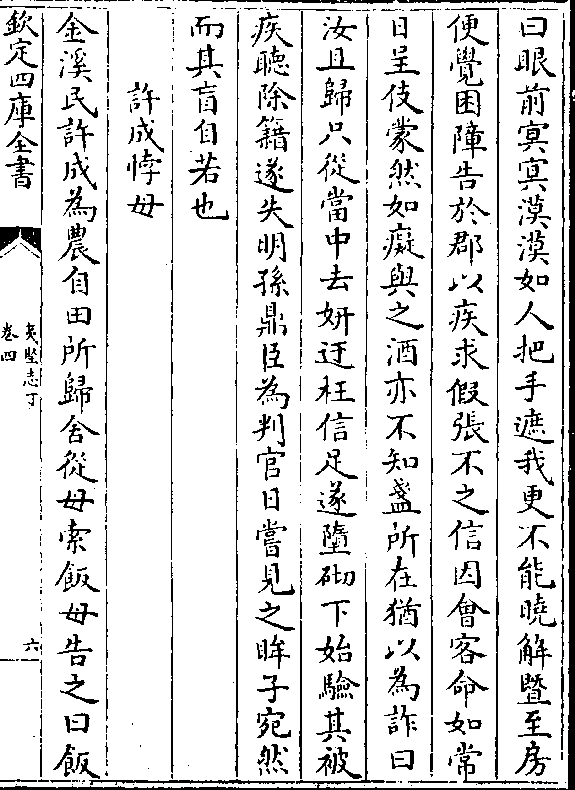 曰眼前㝠㝠漠漠如人把手遮我更不能曉解暨至房
便覺困障告於郡以疾求假張不之信因會客命如常
日呈伎蒙然如癡與之酒亦不知盞所在猶以為詐曰
汝且歸只從當中去妍迂枉信足遂墮砌下始驗其被
疾聽除籍遂失明孫鼎臣為判官日嘗見之眸子宛然
而其盲自若也
許成悖母
金溪民許成為農自田所歸舍從母索飯母告之曰飯
欽定四庫全書
夷堅志丁
卷四
六